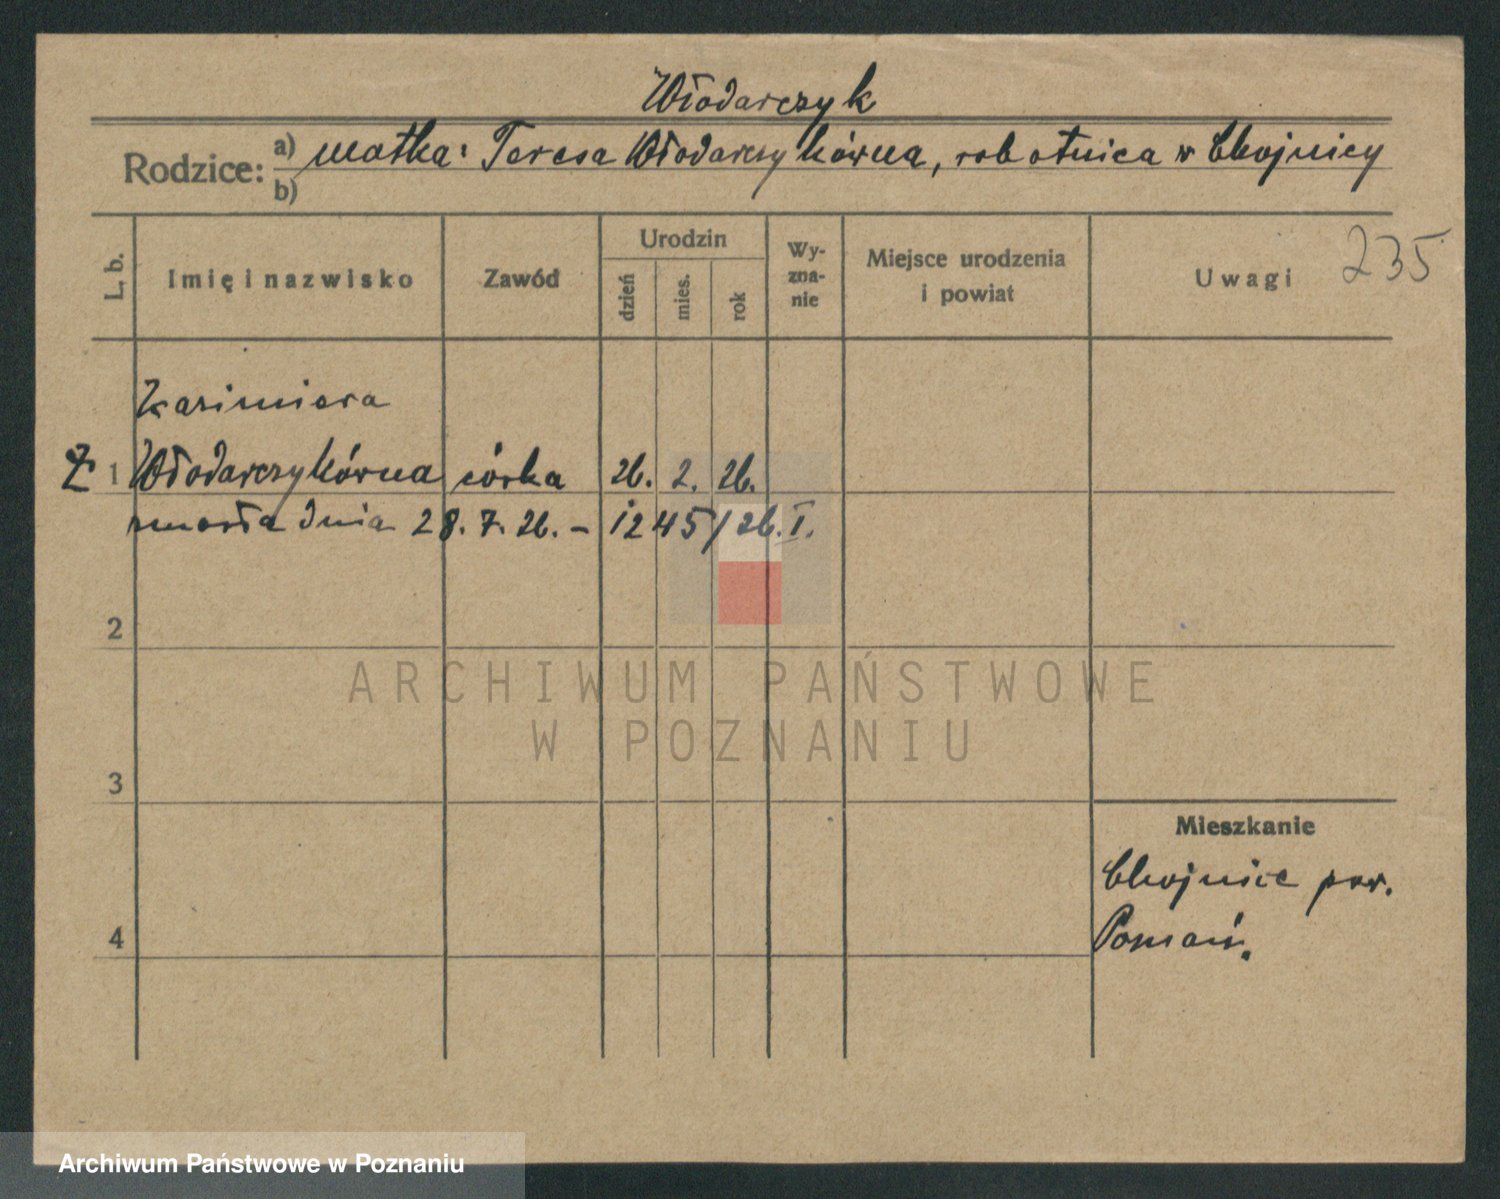 Włodarczyk
Rodzice: a) matka: Teresa Włodarczykówna, robotnica w Chojnicy
b)
L. b.
Imię i nazwisko
Zawód
Urodzin
dzień
mies.
rok
Wy-
zna-
nie
Miejsce urodzenia
i powiat
Uwagi
235
Kazimiera
Ż 1 Włodarczykówna córka 26. 2. 26.
zmarła dnia 28. 7. 26. – 1245/26. I.
2
ARCHIWUM PAŃSTWOWE
W POZNANIU
3
Mieszkanie
Chojnice pow.
Poznań.
4
Archiwum Państwowe w Poznaniu